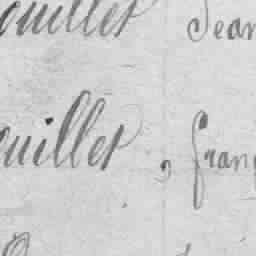 ouillet Jean
ouillet, fran